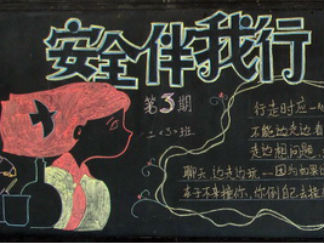 安全伴我行
第3期
二<3>班
行走时应一
不能边走边看
走边想问题
聊天、边走边玩--因为如果
车子不来撞你,你倒自己去撞